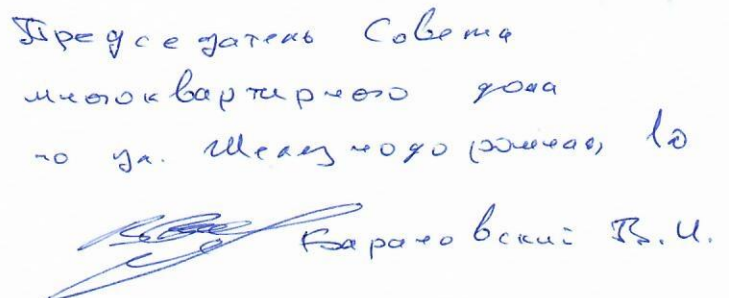 Председатель Совета
многоквартирного дома
по ул. Железнодорожная, 10
Барановский В.И.